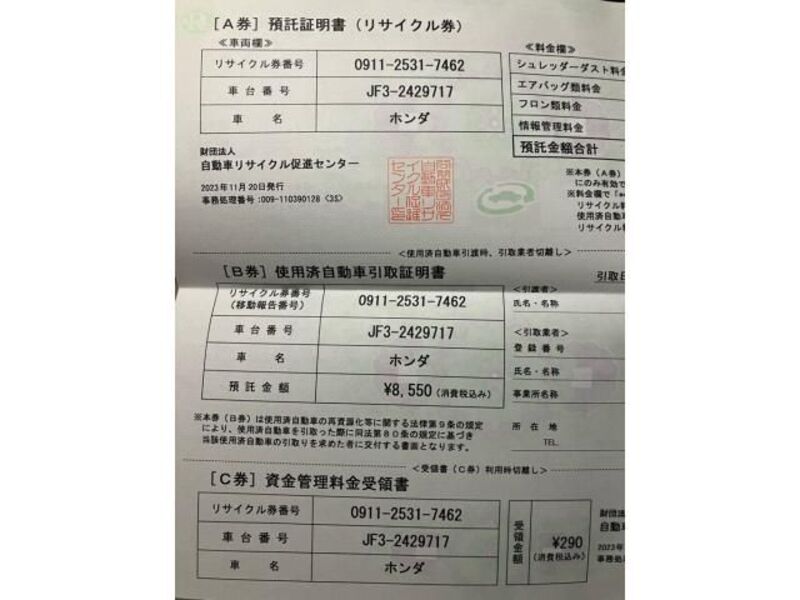 [A券] 預託証明書(リサイクル券)
≪車両欄≫
リサイクル券番号 0911-2531-7462
車台番号 JF3-2429717
車名 ホンダ
≪料金欄≫
シュレッダーダスト料金
エアバッグ類料金
フロン類料金
情報管理料金
預託金額合計
財団法人
自動車リサイクル促進センター
2023年11月20日発行
事務処理番号:009-110390128 <3S>
※本券(A券)
にのみ有効で
※料金欄で「*
リサイクル料
使用済自動車
リサイクル料
<使用済自動車引渡時、引取業者切離し>
[B券] 使用済自動車引取証明書
リサイクル券番号
(移動報告番号) 0911-2531-7462
車台番号 JF3-2429717
車名 ホンダ
預託金額 ¥8,550(消費税込み)
引取日
<引渡者>
氏名・名称
<引取業者>
登録番号
氏名・名称
事業所名称
所在地
TEL
※本券(B券)は使用済自動車の再資源化等に関する法律第9条の規定
により、使用済自動車を引取った際に同法第80条の規定に基づき
当該使用済自動車の引取りを求めた者に交付する書面となります。
<受領書(C券)利用時切離し>
[C券] 資金管理料金受領書
リサイクル券番号 0911-2531-7462
車台番号 JF3-2429717
車名 ホンダ
受領金額 ¥290
(消費税込み)
財団法
自動車
2023年
事務処